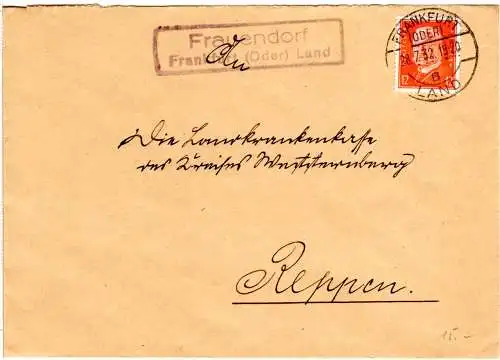 Frauendorf
Frankfurt (Oder) Land
An
FRANKFURT
(ODER)
28.7.32.19-20
a
LAND
12
Die Landkrankenkasse
des Kreises Weststernberg
Reppen.
15.-